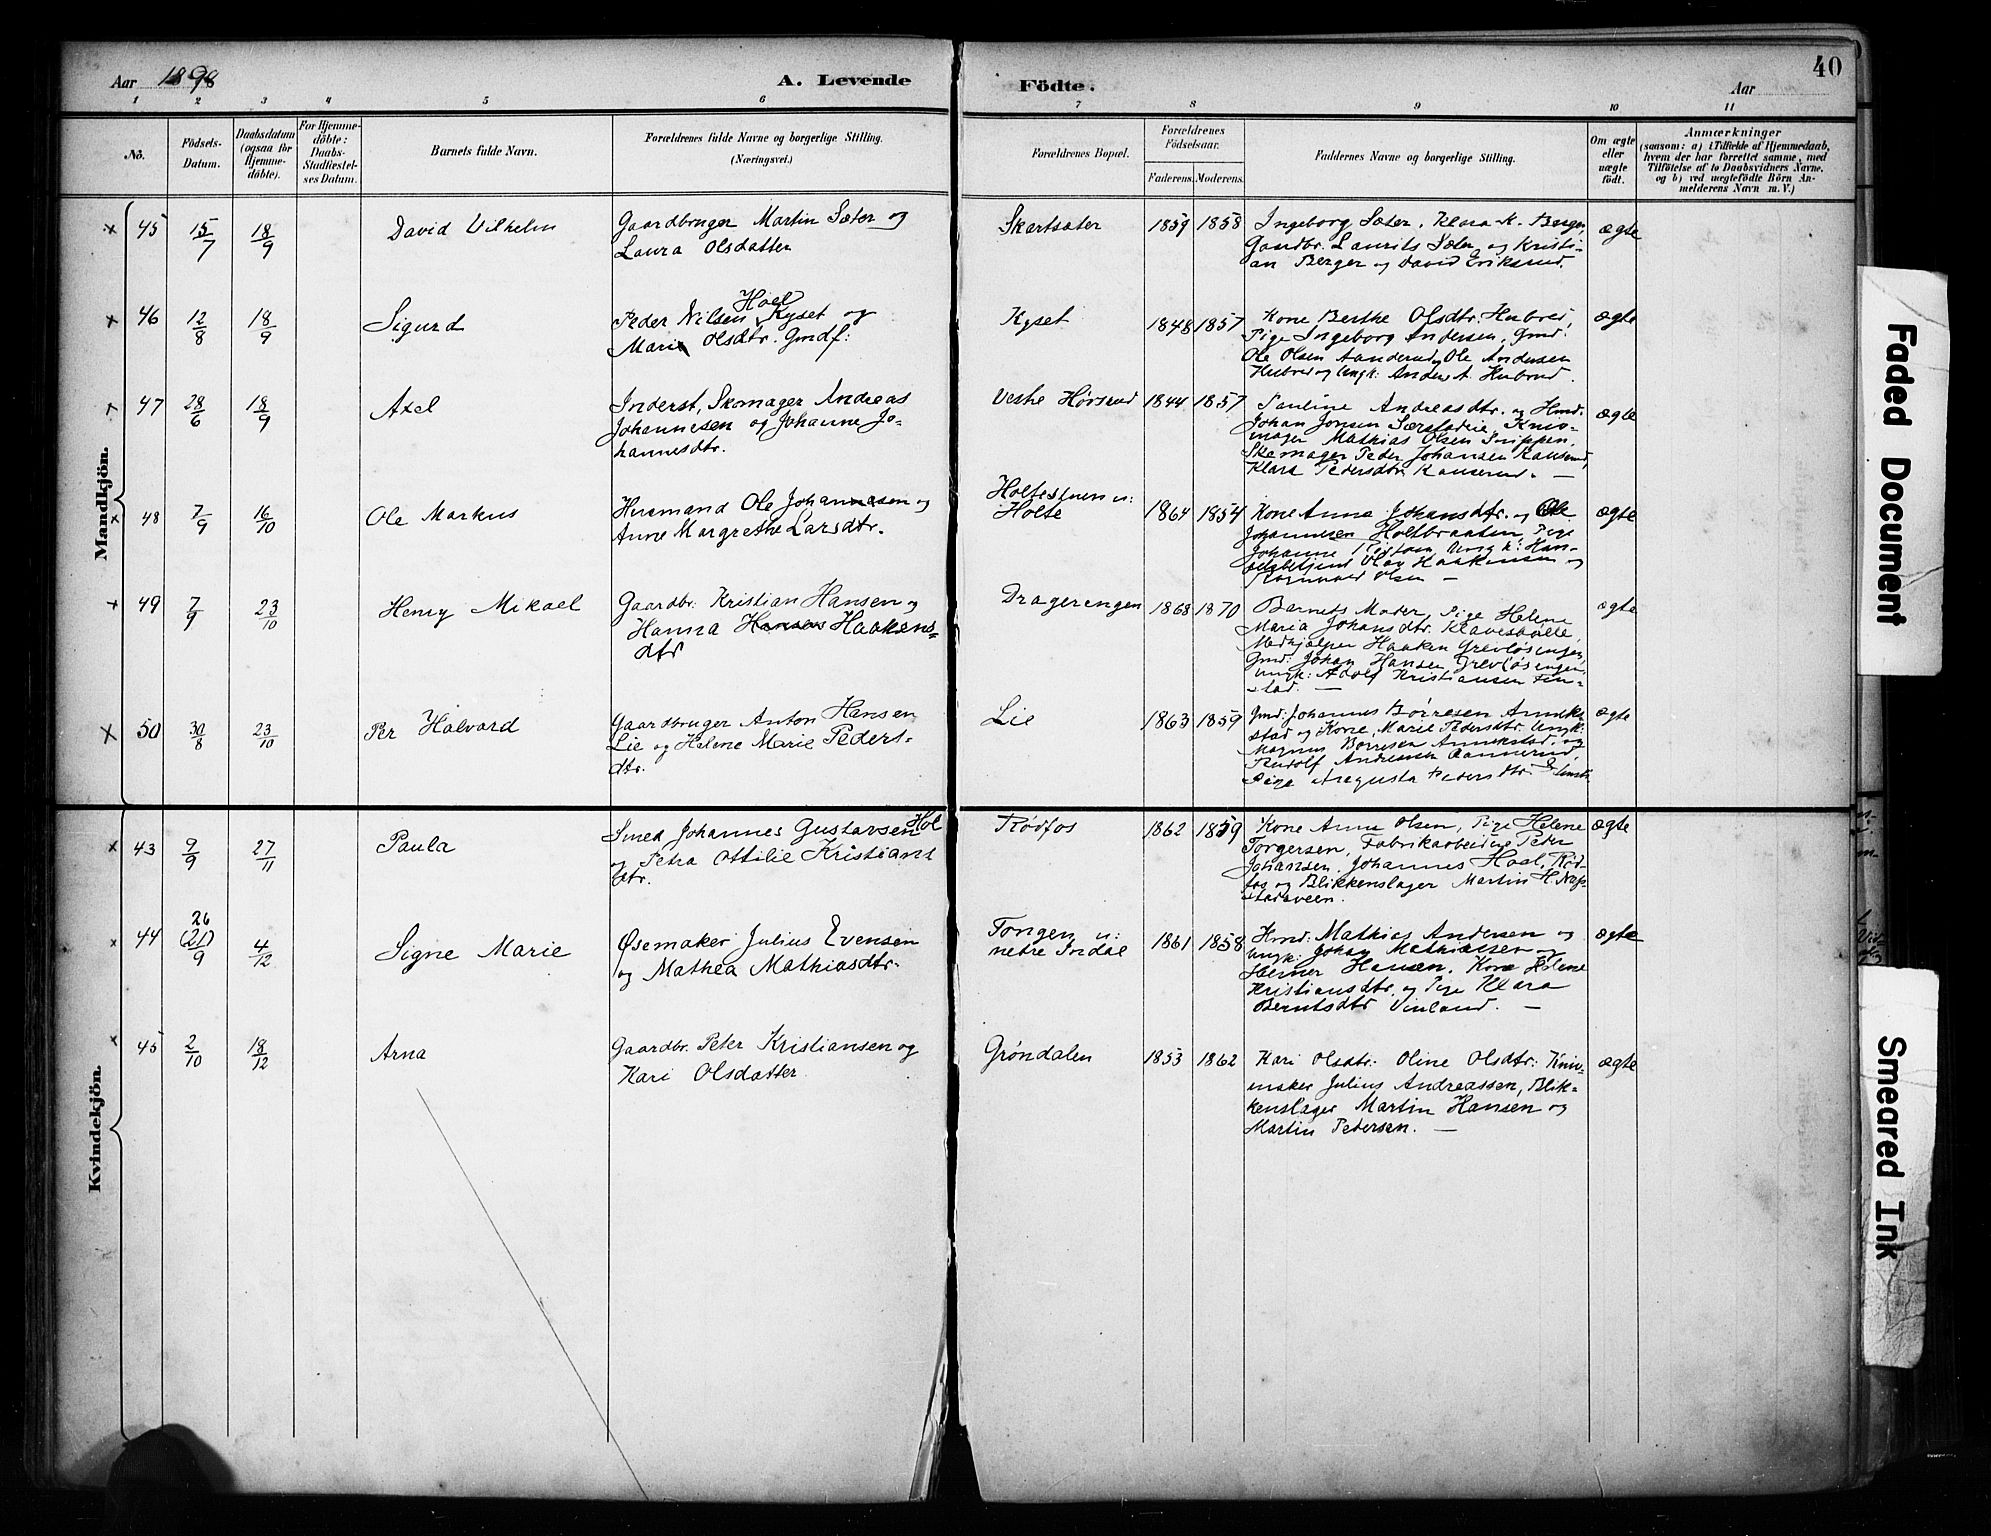 Aar 1898 A. Levende Födte. Aar 40
1 2 3 4 5 6 7 8 9 10 11
No.
Födsels-Datum.
Daabsdatum (ogsaa for Hjemme-döbte).
For Hjemme-döbte: Daabs-Stadfæstel-ses Datum.
Barnets fulde Navn.
Forældrenes fulde Navne og borgerlige Stilling.
(Næringsvei.)
Forældrenes Bopæl.
Forældrenes Födselsaar.
Faderens. Moderens.
Faddernes Navne og borgerlige Stilling.
Om ægte eller uægte födt.
Anmærkninger
(saasom: a) i Tilfælde af Hjemmedaab,
hvem der har forrettet samme, med
Tilföielse af to Daabsvidners Navne.
og b) ved uægtefödte Börn An-
melderens Navn m. V.)
Mandkjön.
45 15/7 18/9 David Vilhelm
Gaardbruger Martin Sæter og
Laura Olsdatter
Skartsæter 1859 1858
Ingeborg Sæter, Klara K. Berger,
Gaardbr. Laurits Sæter og Kristi-
an Berger og David Eriksrud.
ægte
46 12/8 18/9 Sigurd
Hoel
Peder Nilsen Kyset og
Marie Olsdtr. Gmdf:
Kyset 1848 1857
Kone Berthe Olsdtr. Hubred,
Pige Ingeborg Andersen, Gmd:
Ole Olsen Aanderud, Ole Andersen
Hubred og Ungk: Anders A. Hubred.
ægte
47 28/6 18/9 Axel
Inderst, Skomager Andreas
Johannesen og Johanne Jo-
hannesdtr.
Vestre Hørsrud 1844 1857
Pauline Andreasdtr. og Hmd.
Johan Jonsen Sørstadeie, Kniv-
mager Mathias Olsen Snippen,
Skomager Peder Johansen Kanserud,
Klara Pedersdtr. Kanserud. —
ægte
48 7/9 16/10 Ole Markus
Husmand Ole Johannesen og
Anne Margrethe Larsdtr.
Holtestuen u:
Holte 1864 1854
Kone Anne Johansdtr. og Ole
Johannesen Holtbraaten, Pige
Johanne Ungk: Han-
delsbetjent Olav Haakensen og
Ragnvald Olsen —
ægte
49 7/9 23/10 Henry Mikael
Gaardbr. Kristian Hansen og
Hanna Hansen Haakens-
dtr
Dragerengen 1868 1870
Barnets Moder, Pige Helene
Maria Johansdtr. Klavesbölle,
Medhjælper Haaken Grevløsingen,
Gmd: Johan Hansen Grevløsingen,
Ungk: Adolf Kristiansen Fin-
stad. —
ægte
50 30/8 23/10 Per Halvard
Gaardbruger Anton Hansen
Lie og Helene Marie Peders-
dtr.
Lie 1863 1859
Gmd: Johannes Børresen Annek-
stad og Kone, Marie Pedersdtr. Ungk:
Magnus Børresen Annekstad, og
Rudolf Andersen
Pige Augusta Pedersdtr.
ægte
Kvindekjön.
43 9/9 27/11 Paula
Smed Johannes Gustavsen Hol
og Petra Ottilie Kristians
dtr.
Rødfos 1862 1859
Kone Anne Olsen, Pige Helene
Torgersen, Fabrikarbeidere Peter
Johansen, Johannes Hoel, Rød-
fos og Blikkenslager Martin H. Nøp-
stadsveen.
ægte
44 26 (21)/9 4/12 Signe Marie
Øsemaker Julius Evensen
og Mathea Mathiasdtr.
Tongen u:
nedre Indal 1861 1858
Hmd: Mathias Andersen og
Ungk: Johan Mathiassen og
Herner Hansen. Kone Helene
Kristiansdtr. og Pige Klara
Berntsdtr Vinland. —
ægte
45 2/10 18/12 Arna
Gaardbr. Peter Kristiansen og
Kari Olsdatter
Grøndalen 1853 1862
Kari Olsdtr: Oline Olsdtr: Kniv-
maker Julius Andreassen, Blik-
kenslager Martin Hansen og
Martin Pedersen. —
ægte
Faded Document
Smeared Ink